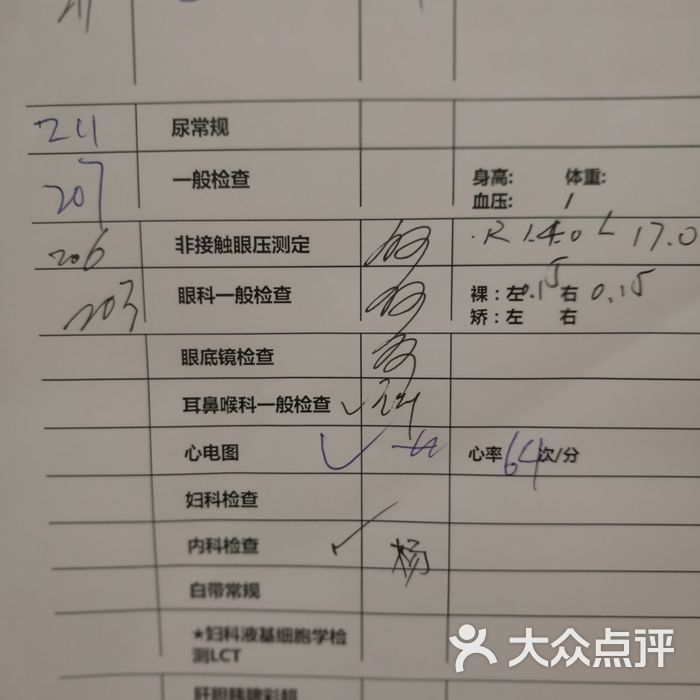 211 尿常规
207 一般检查 身高: 体重:
血压: /
206 非接触眼压测定 R 14.0 L 17.0
203 眼科一般检查 裸:左0.15 右 0.15
矫:左 右
眼底镜检查
耳鼻喉科一般检查 ✓
心电图 ✓ 心率64次/分
妇科检查
内科检查 ✓ 杨
白带常规
★妇科液基细胞学检
测LCT
肝胆胰脾彩超
大众点评